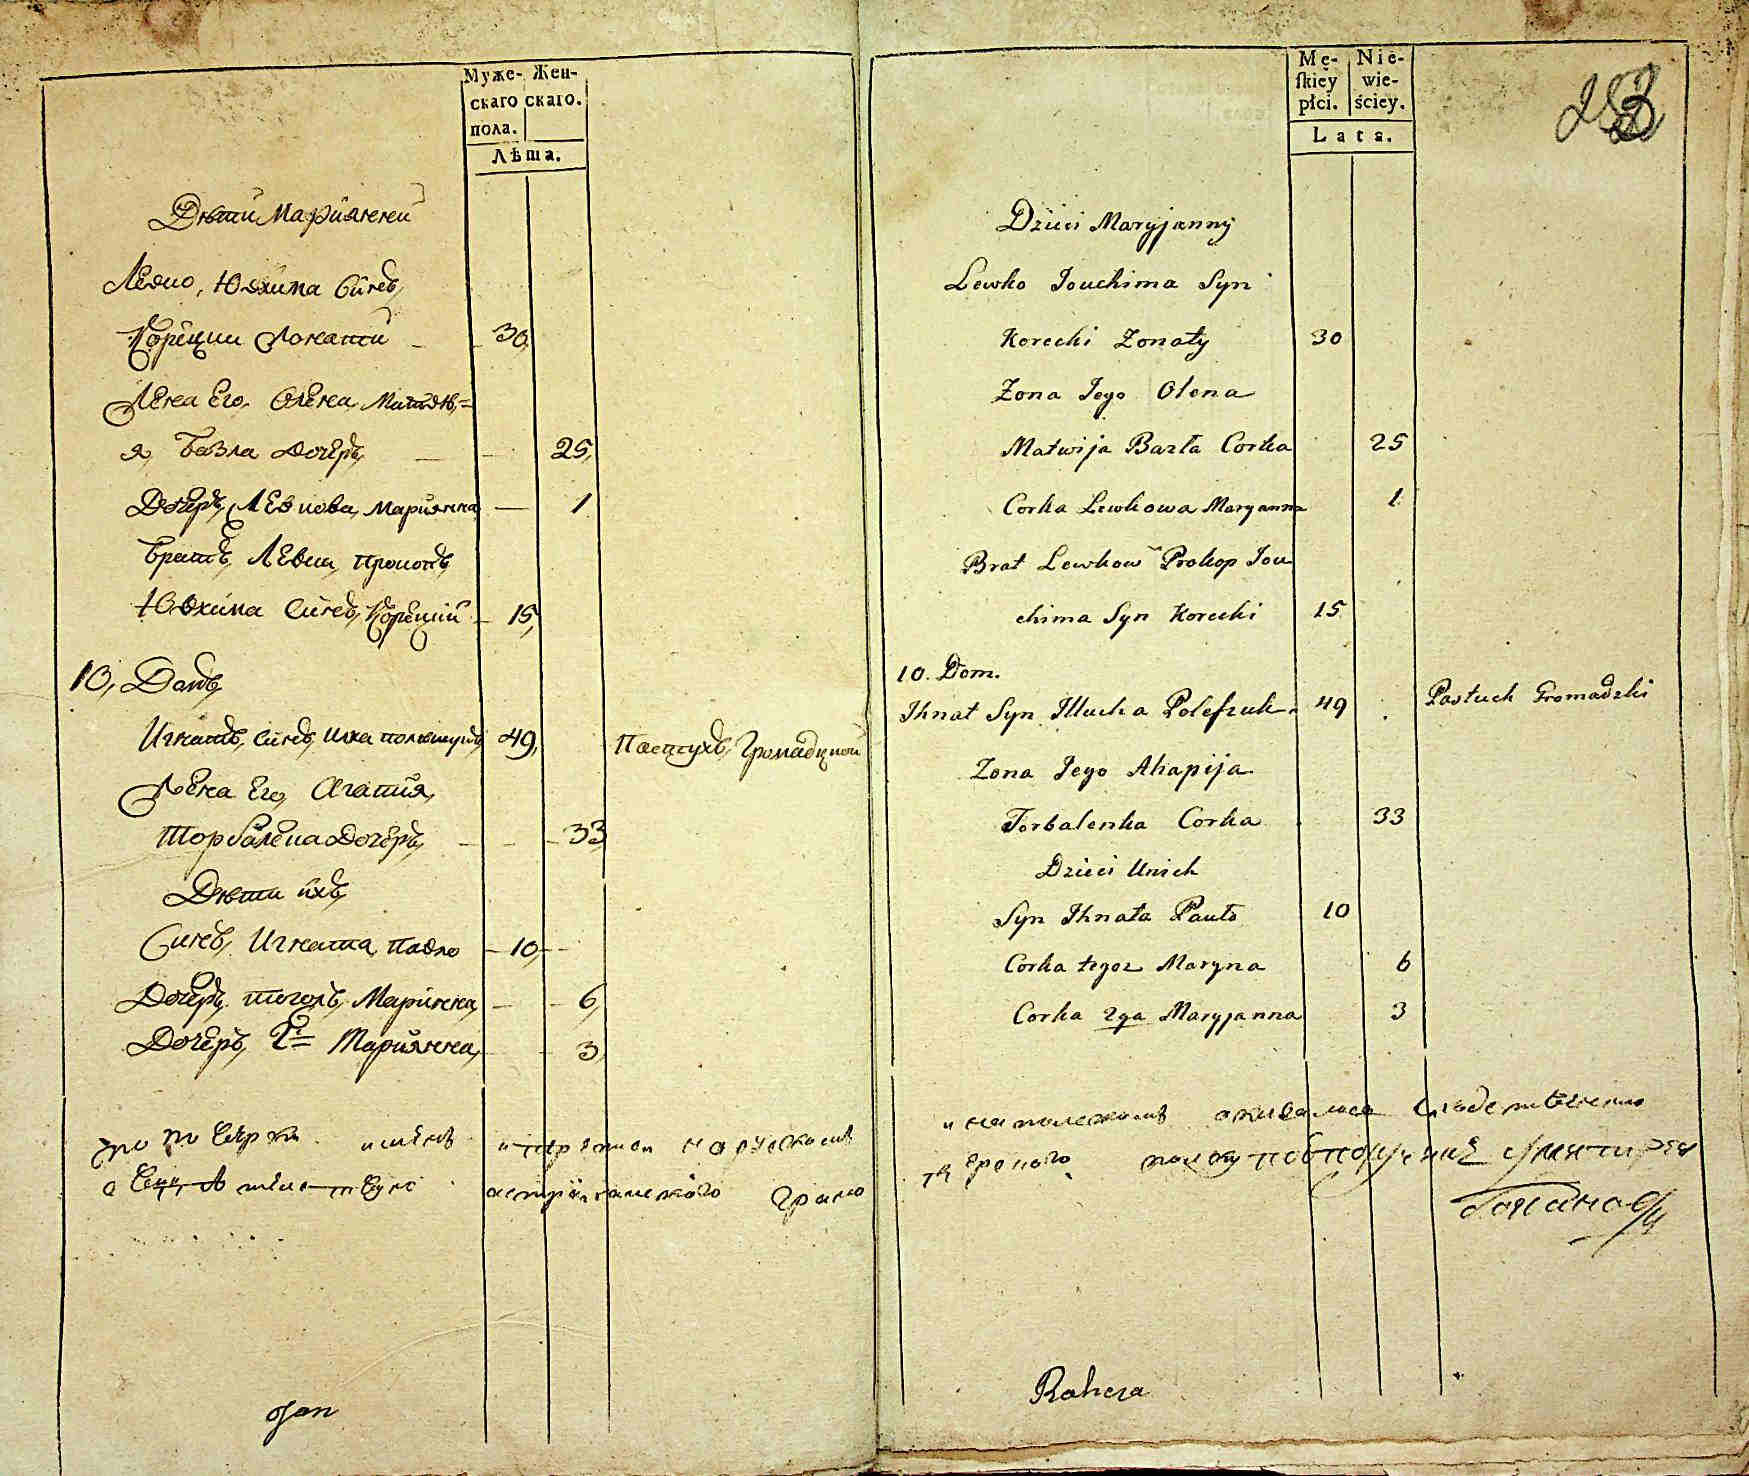 Муже- Жен-
скаго скаго.
пола.
Лѣта.
Дѣти Мариянни
Левко, Ювхима Синъ,
Корецки Жонати 30
Жена Его, Олена Матвѣ=
я, Базла Дочеръ, 25,
Дочеръ, Левкова, Мариянна 1
Братъ, Левка, Прокопъ,
Ювхима Синъ, Корецкий 15,
10, Домъ,
Игнатъ, Синъ, Илка Полещукъ 49, Пастухъ, Громадцкой
Жена Его, Агапия,
Торбаленка Дочеръ, 33
Дѣти ихъ,
Синъ, Игната, Павло 10,
Дочеръ, тогожъ, Маринка, 6,
Дочеръ, 2я Мариянна, 3,
Jan
Mę- Nie-
skiey wie-
płci. ściey.
Lata.
Dzieci Maryjanny
Lewko Jouchima Syn
Korecki Zonaty 30
Zona Jego Olena
Matwija Bazła Corka 25
Corka Lewkowa Maryanna 1
Brat Lewkow Prokop Jou
chima Syn Korecki 15
10. Dom.
Ihnat Syn Illucha Poleszuk 49 Pastuch Gromadzki
Zona Jego Ahapija
Torbalenka Corka 33
Dzieci Unich
Syn Ihnata Pauło 10
Corka tegoz Maryna 6
Corka 2ga Maryjanna 3
Rahoza